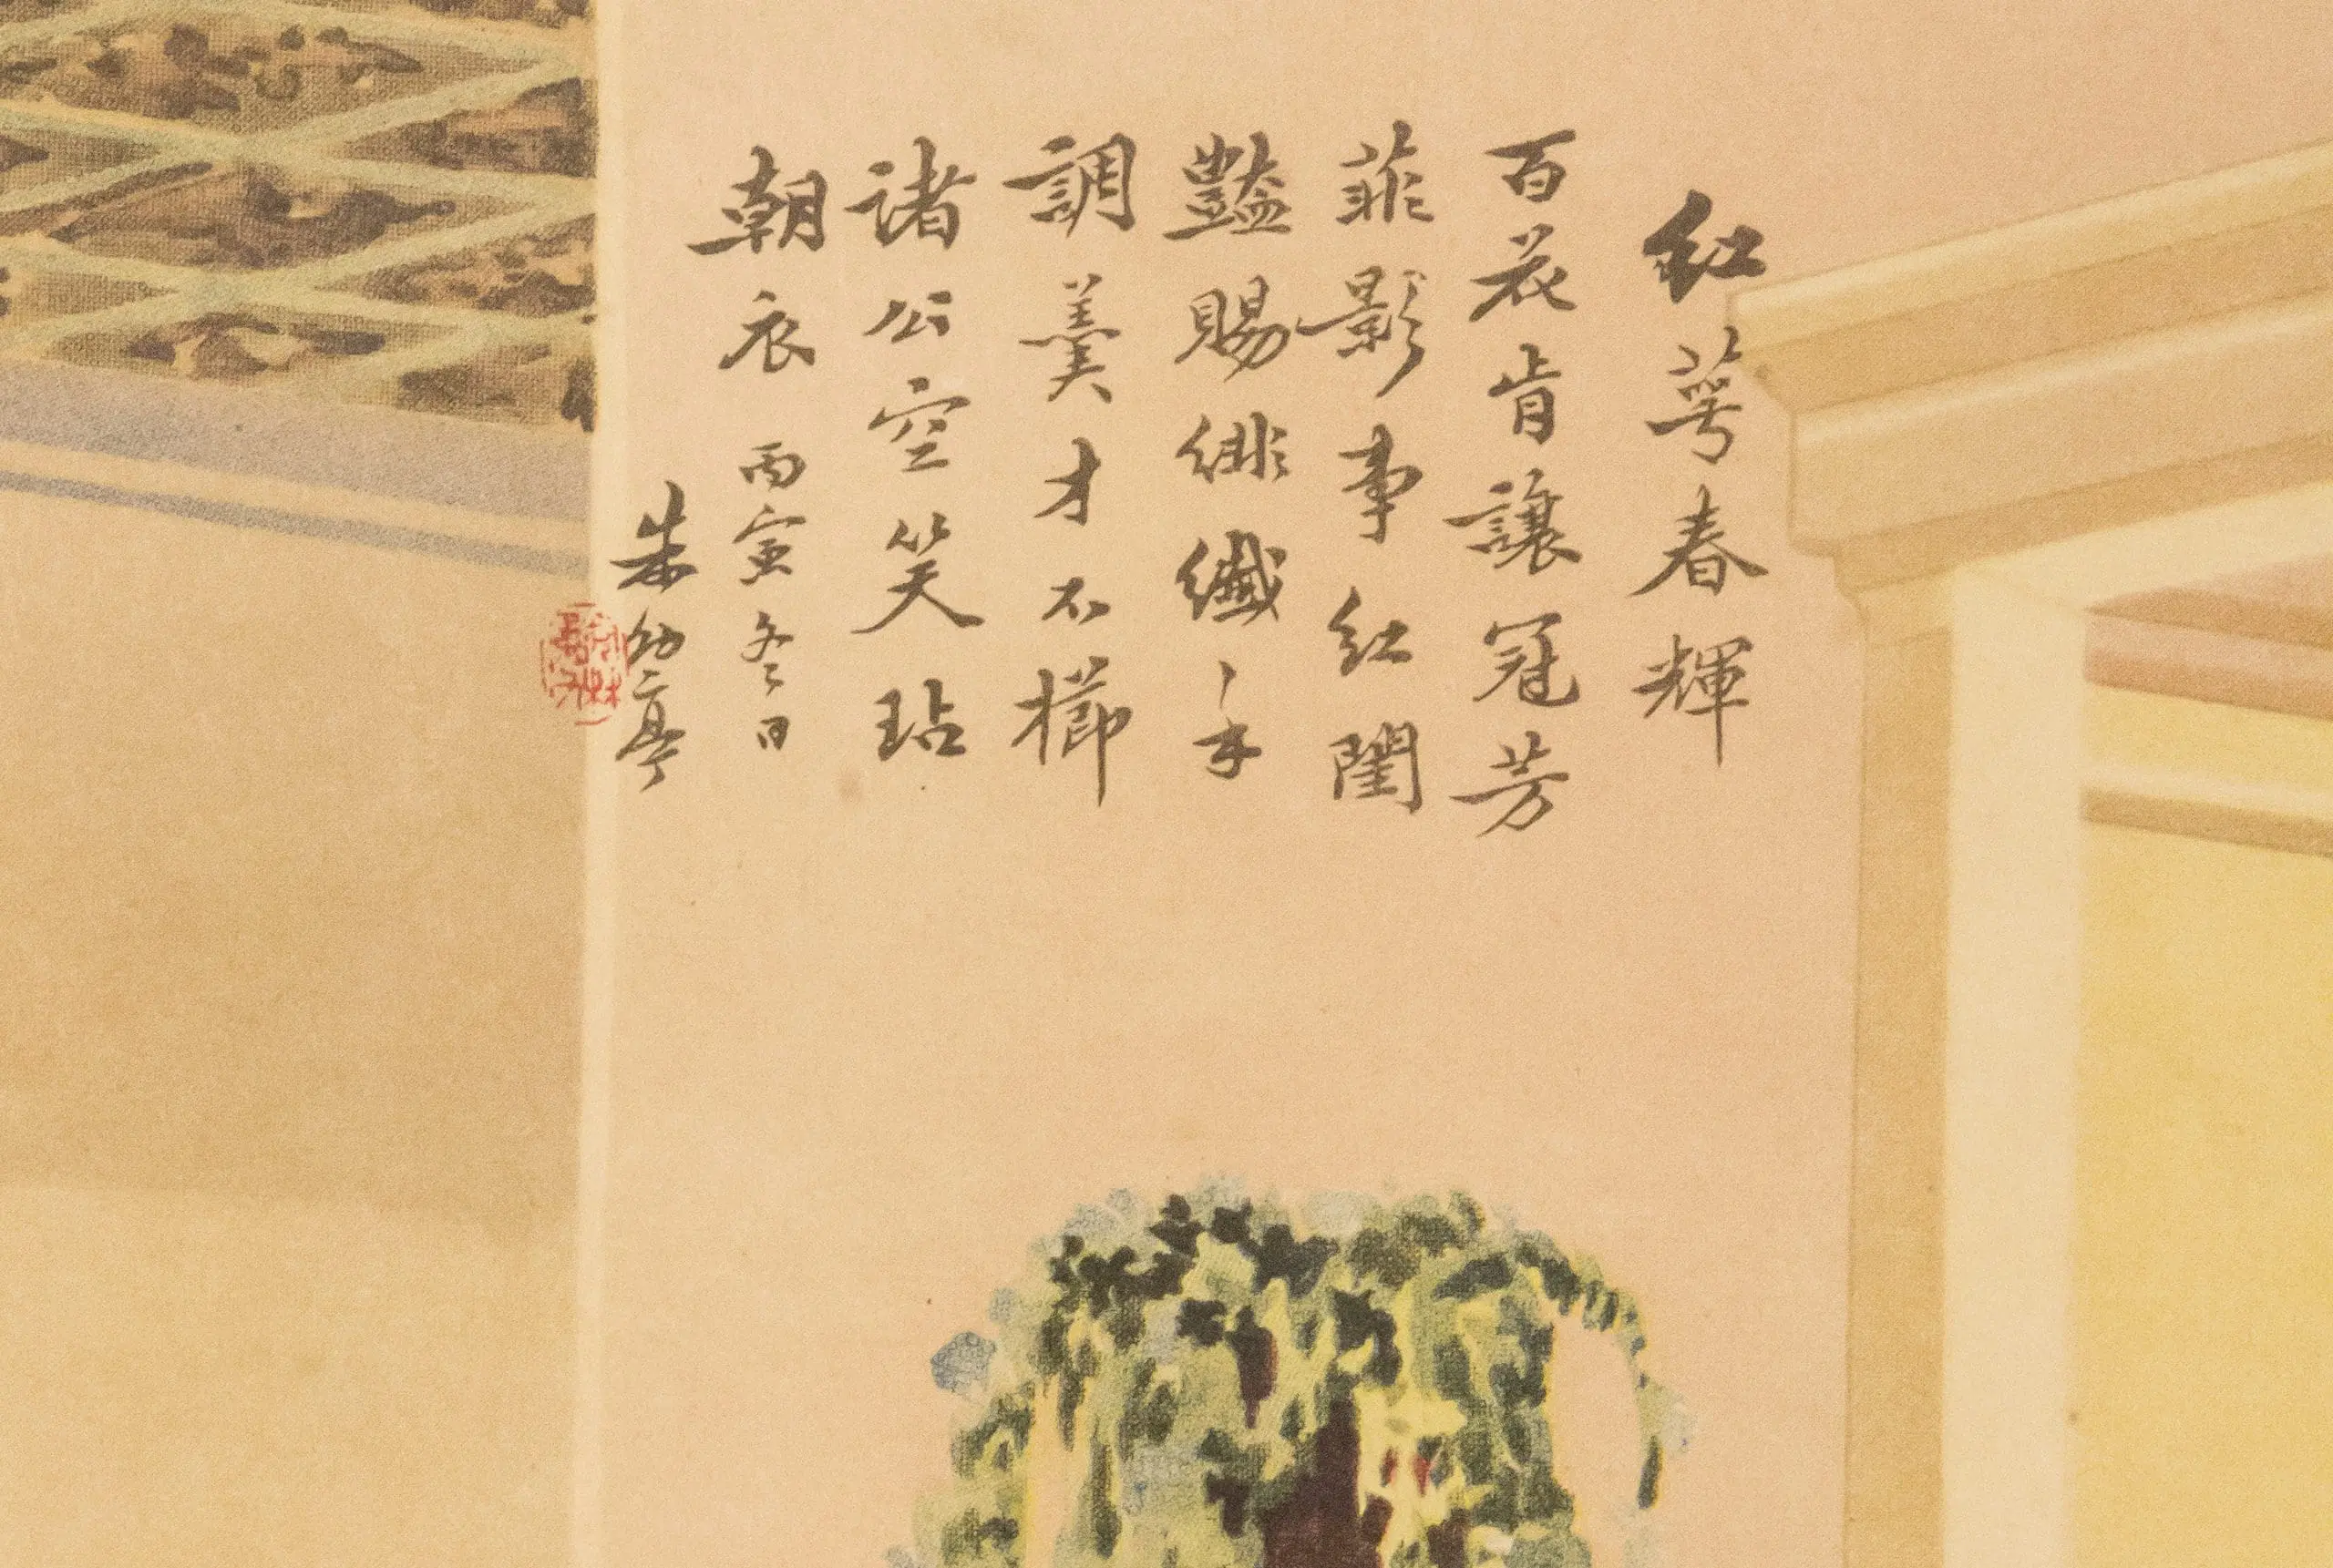 紅萼春輝
百花肯讓冠芳
菲影事紅閨
豔賜緋纖〻手
調羹才不櫛
諸公空笑玷
朝衣 丙寅冬日
朱幼亭